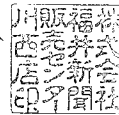 株式会社
福井新聞
販売センター
川西店印